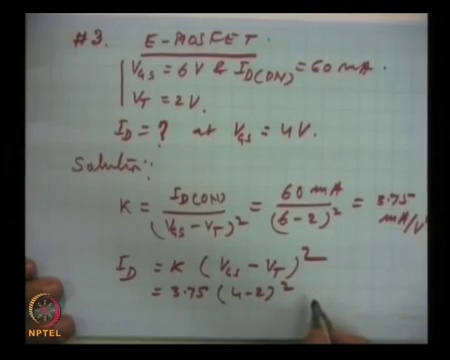 #3. E-MOSFET
V_GS = 6V & I_D(ON) = 60 mA.
V_T = 2V.
I_D = ? at V_GS = 4V.
Solution:
K = I_D(ON) / (V_GS - V_T)^2 = 60 mA / (6-2)^2 = 3.75 mA/V
I_D = K (V_GS - V_T)^2
= 3.75 (4-2)^2
NPTEL